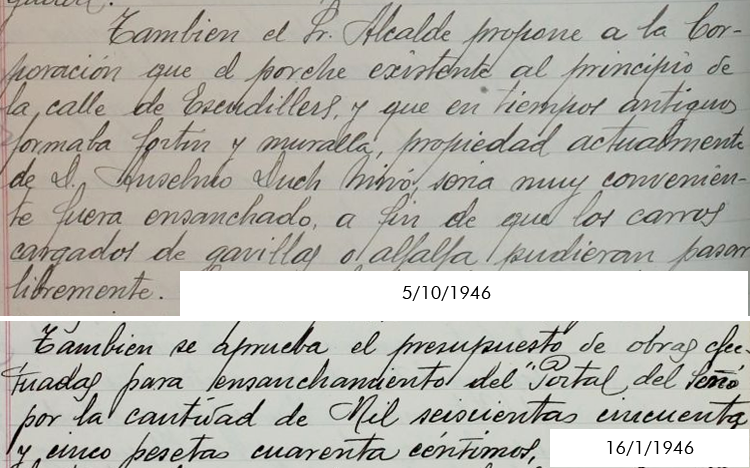 Tambien el Sr. Alcalde propone a la Cor-
poración que el porche existente al principio de
la calle de Escudillers, y que en tiempos antiguos
formaba fortin y muralla, propiedad actualmente
de D. Anselmo Duch Ninó, seria muy convenien-
te fuera ensanchado, a fin de que los carros
cargados de gavillas o alfalfa pudieran pasar
libremente.
5/10/1946
Tambien se aprueba el presupuesto de obras efec-
tuadas para ensanchamiento del "Portal del
por la cantidad de Mil seiscientas cincuenta
y cinco pesetas cuarenta céntimos,
16/1/1946